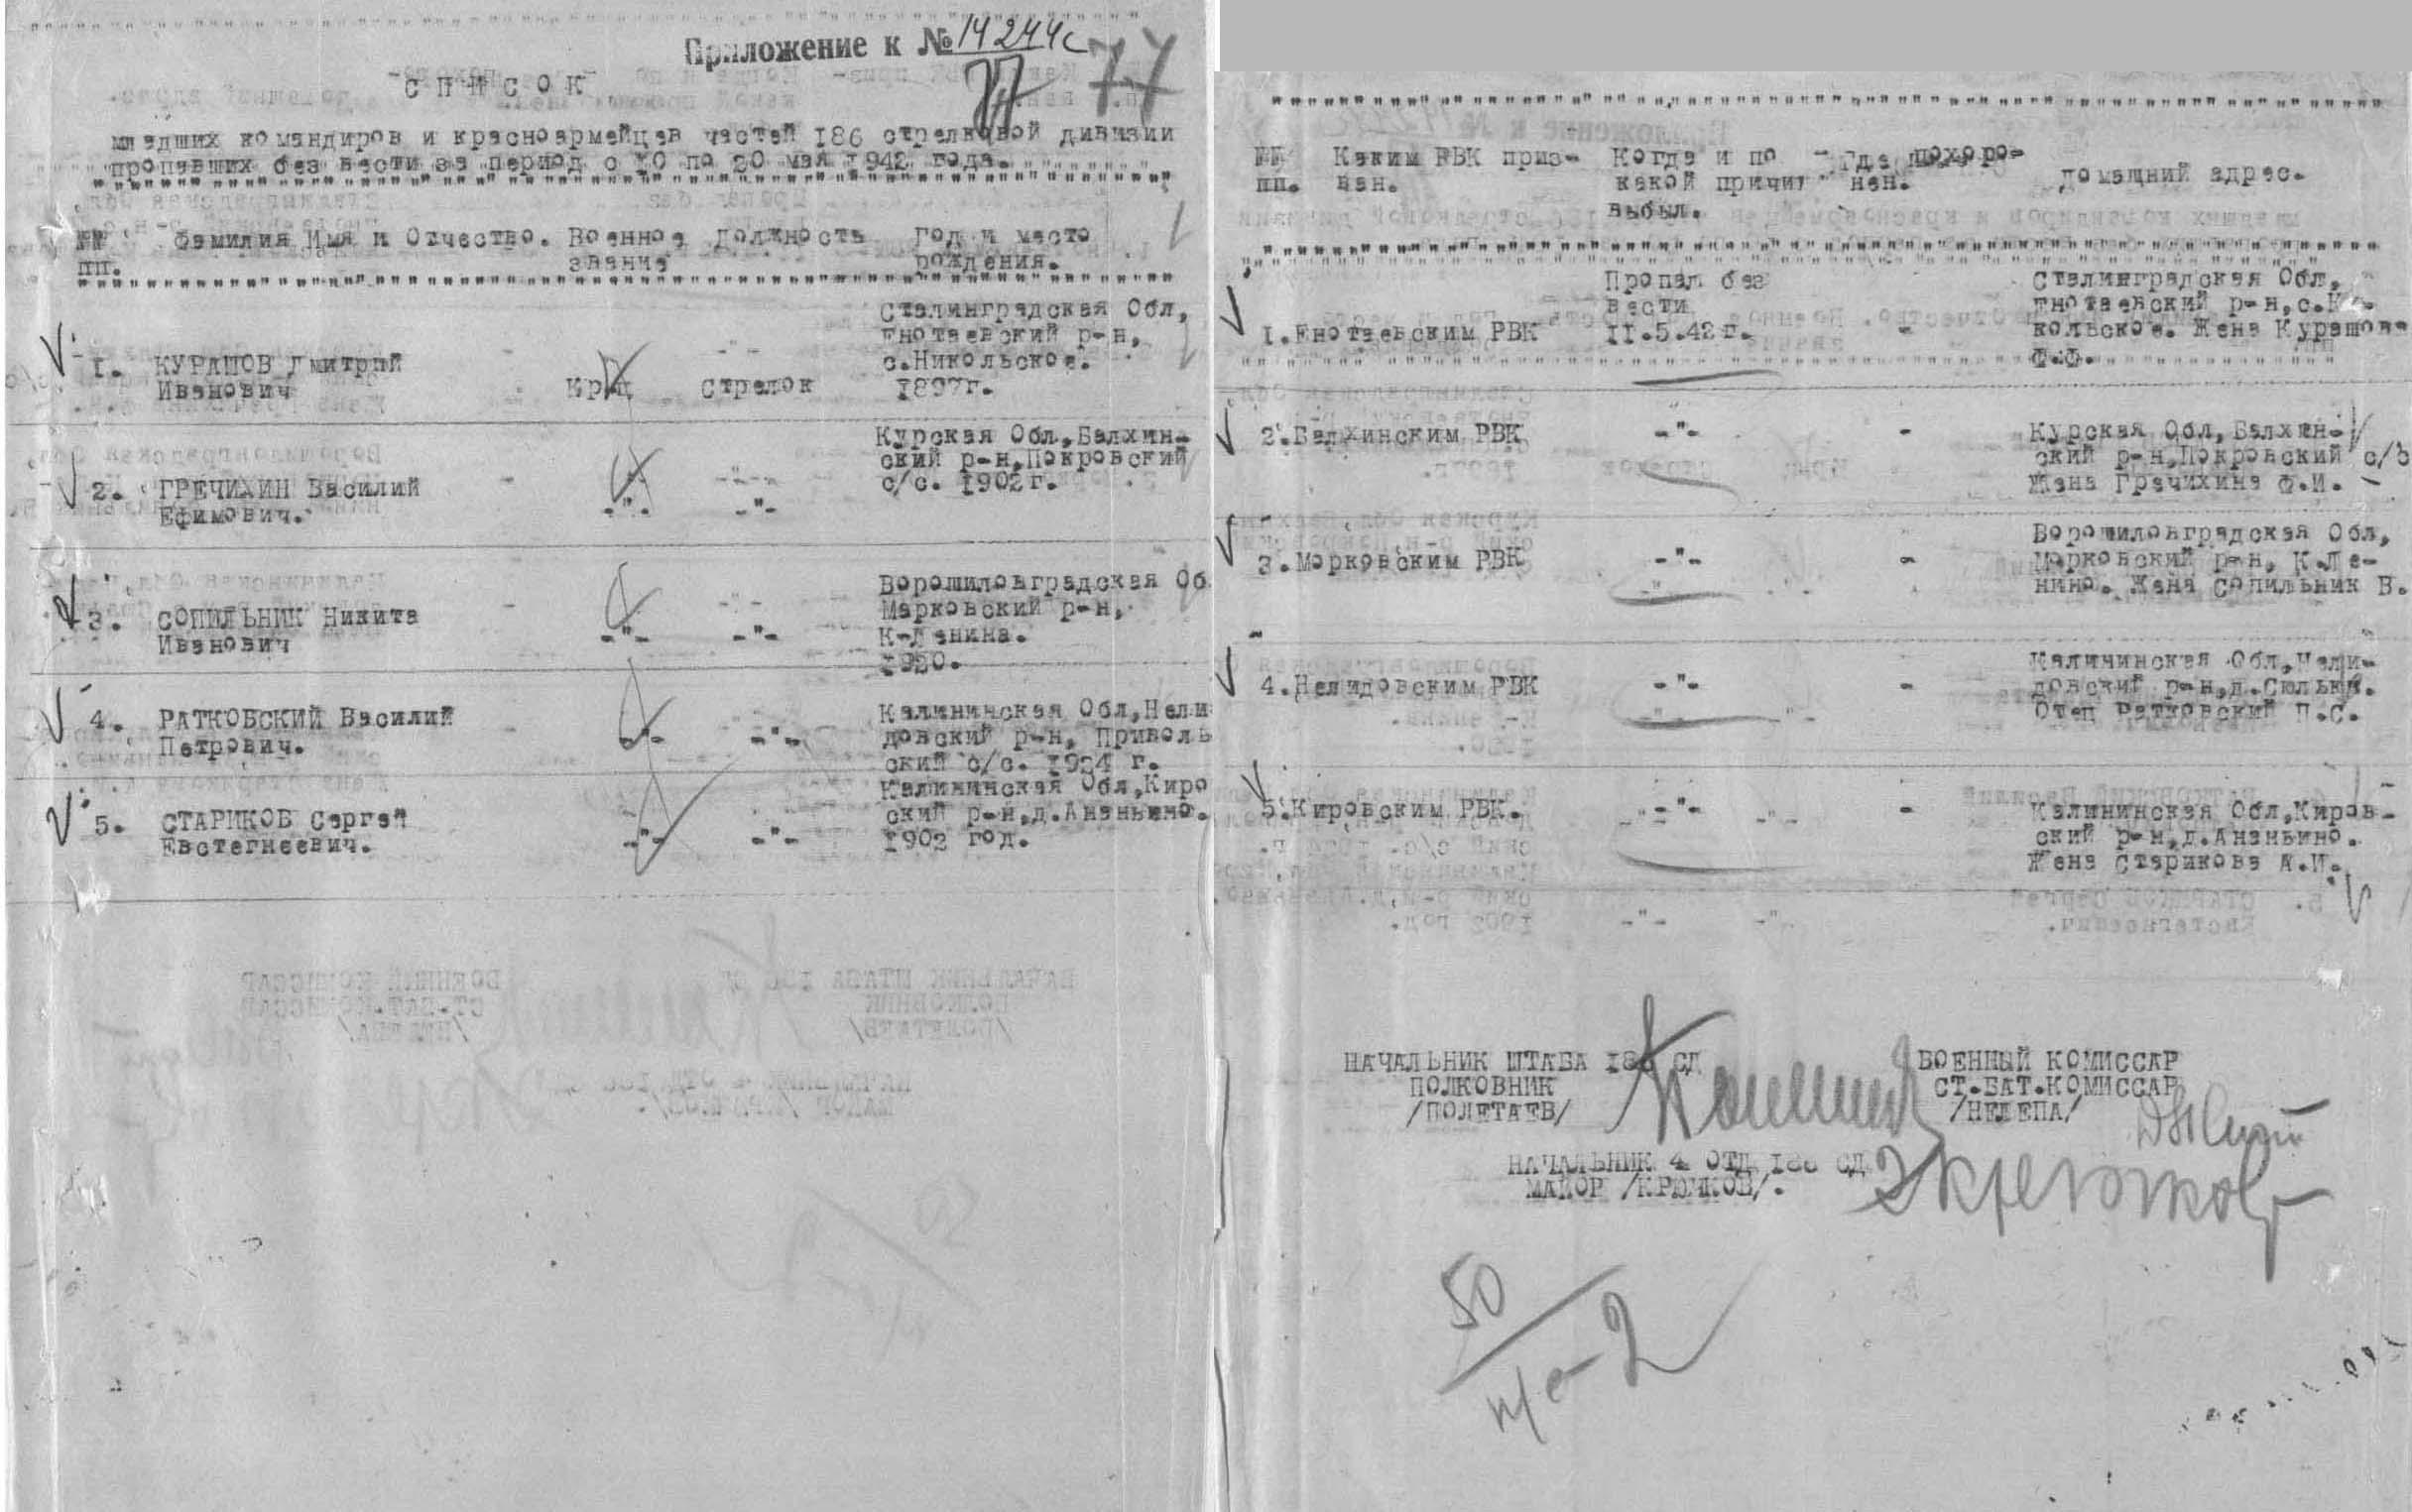 Приложение к № 14244с
77
СПИСОК
младших командиров и красноармейцев частей 186 стрелковой дивизии
пропавших без вести за период с 10 по 20 мая 1942 года.
№№ Фамилия Имя и Отчество. Военное должность Год и место
пп. звание рождения.
Сталинградская Обл,
Енотаевский р-н,
1. КУРАШОВ Дмитрий с.Никольское.
Иванович кр-ц стрелок 1897г.
Курская Обл,Балхин-
ский р-н,Покровский
2. ГРЕЧИХИН Василий с/с. 1902г.
Ефимович. -"- -"-
Ворошиловградская Об
Марковский р-н,
3. СОПИЛЬНИК Никита К-Ленина.
Иванович -"- -"- 1920.
4. РАТКОВСКИЙ Василий Калининская Обл,Нели
Петрович. -"- -"- довский р-н, Приволь
ский с/с. 1924 г.
Калининская Обл,Киро
5. СТАРИКОВ Сергей ский р-н,д.Ананьино.
Евстегнеевич. -"- -"- 1903 год.
№№ Каким РВК приз- Когда и по Где похоро- домашний адрес.
пп. ван. какой причин нен.
выбыл.
Пропал без Сталинградская Обл,
вести Енотаевский р-н,с.Ни-
1.Енотаевским РВК 11.5.42г. - кольское. Жена Курашова
Ф.Ф.
2.Балхинским РВК -"- - Курская Обл,Балхин-
ский р-н,Покровский с/с
Жена Гречихина Ф.И.
Ворошиловградская Обл,
3.Морковским РВК -"- - Морковский р-н, К.Ле-
нино. Жена Сопильник В.
Калининская Обл,Нели-
4.Нелидовским РВК -"- - довский р-н,д.Сюльки.
Отец Ратковский П.С.
5.Кировским РВК. -"- - Калининская Обл,Киров-
ский р-н,д.Ананьино.
Жена Старикова А.И.
НАЧАЛЬНИК ШТАБА 186 СД ВОЕННЫЙ КОМИССАР
ПОЛКОВНИК СТ.БАТ.КОМИССАР
/ПОЛЕТАЕВ/ /НЕЛЕПА/
НАЧАЛЬНИК 4 ОТД 186 СД
МАЙОР /КРЮКОВ/.
50
н/с-2